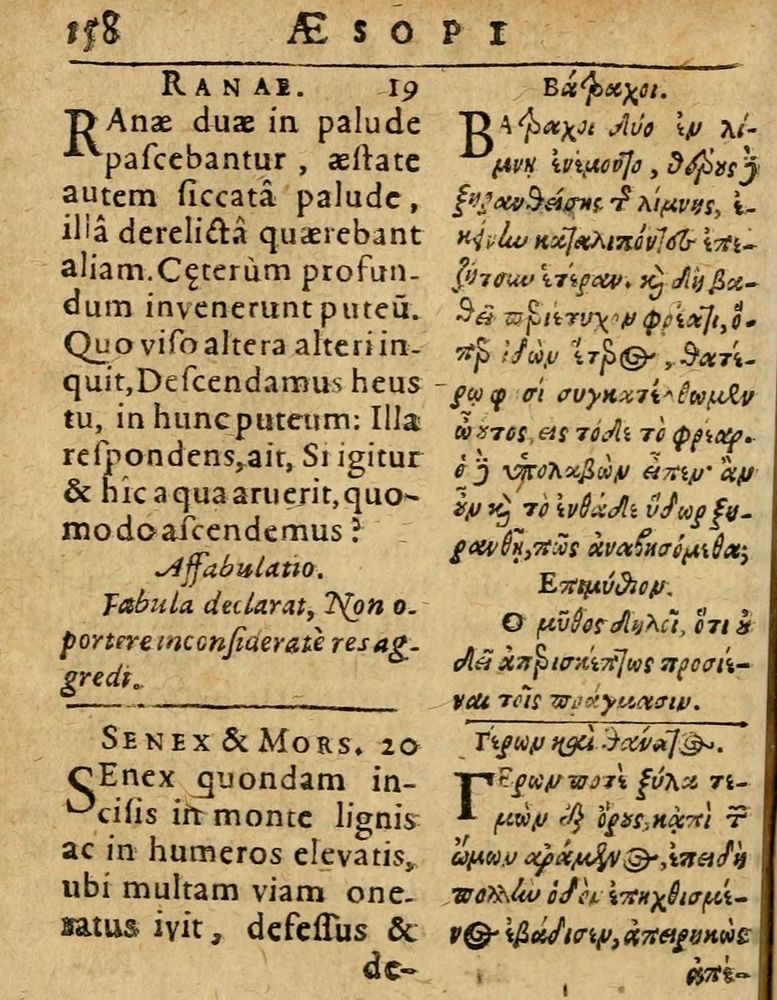 158 ÆSOPI
RANAE. 19
RAnæ duæ in palude
paſcebantur, æſtate
autem ſiccatâ palude,
illâ derelictâ quærebant
aliam. Cęterùm profun-
dum invenerunt puteū.
Quo viſo altera alteri in-
quit, Deſcendamus heus
tu, in hunc puteum: Illa
reſpondens, ait, Si igitur
& hic aqua aruerit, quo-
modo aſcendemus?
Affabulatio.
Fabula declarat, Non o-
portere inconſideratè res ag-
gredi.
SENEX & MORS. 20
SEnex quondam in-
ciſis in monte lignis
ac in humeros elevatis,
ubi multam viam one-
ratus ivit, defeſſus &
de-
Βάτραχοι.
ΒΑτραχοι δύο ἐν λί-
μνῃ ἐνέμοντο, θέρους δὲ
ξηρανθείσης τῆς λίμνης, ἐ-
κείνην καταλιπόντες ἐπε-
ζήτουν ἑτέραν. καὶ δὴ βα-
θεῖ περιέτυχον φρέατι, ὅ-
περ ἰδὼν ἕτερος, θατέ-
ρῳ φησί συγκατέλθωμεν
ὦ οὗτος, εἰς τόδε τὸ φρέαρ.
ὁ δὲ ὑπολαβὼν εἶπεν· ἂν
οὖν καὶ τὸ ἐνθάδε ὕδωρ ξη-
ρανθῇ, πῶς ἀναβησόμεθα;
Επιμύθιον.
Ο μῦθος δηλοῖ, ὅτι οὐ
δεῖ ἀπερισκέπτως προσιέ-
ναι τοῖς πράγμασιν.
Γέρων καὶ θάνατος.
ΓΕρων ποτὲ ξύλα τε-
μὼν ἐξ ὄρους, κἀπὶ τῶν
ὤμων αράμενος, ἐπειδὴ
πολλὴν ὁδὸν ἐπηχθισμέ-
νος ἐβάδισεν, ἀπειρηκὼς
ἀπέ-